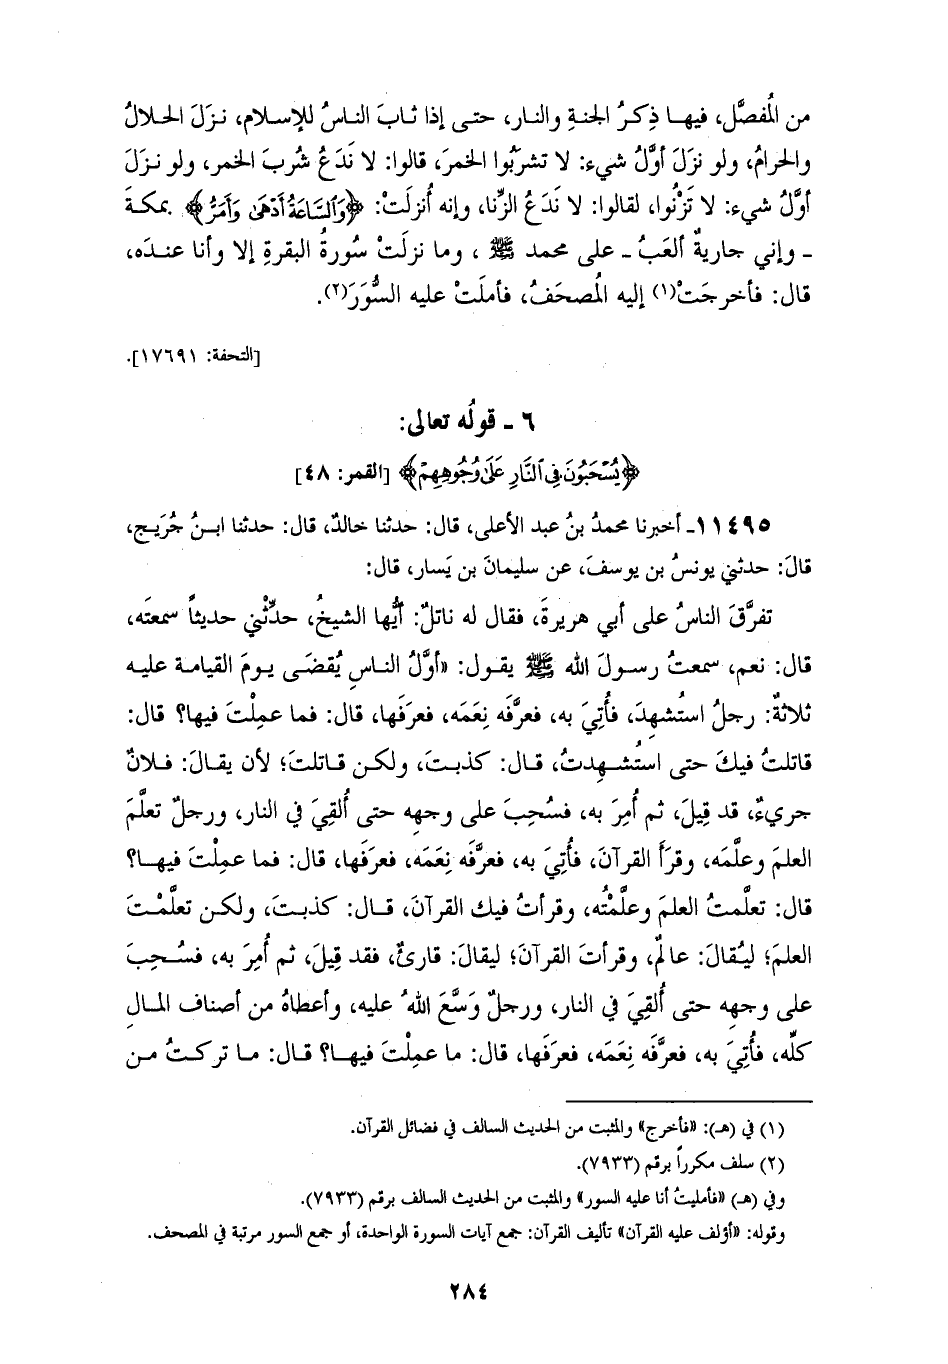 من المُفصَّل، فيهـا ذِكـرُ الجنـةِ والنـار، حتـى إذا ثـابَ النـاسُ للإسـلام، نـزَلَ الحـلالُ
والحرامُ، ولو نزَلَ أوَّلُ شيء: لا تشرَبُوا الخمرَ، قالوا: لا نَدَعُ شُربَ الخمر، ولو نـزَلَ
أوَّلُ شيء: لا تَزْنُوا، لقالوا: لا نَدَعُ الزِّنا، وإنه أُنزلَتْ: ﴿وَٱلسَّاعَةُ أَدْهَىٰ وَأَمَرُّ﴾ بمكـةَ
ـ وإني جاريةٌ ألعَبُ ـ على محمد ﷺ ، وما نزلَتْ سُورةُ البقرةِ إلا وأنا عنـدَه،
قال: فأخرجَتْ(١) إليه المُصحَفُ، فأملَتْ عليه السُّوَرَ(٢).
[التحفة: ١٧٦٩١].
٦ ـ قولُه تعالى:
﴿يُسْحَبُونَ فِى ٱلنَّارِ عَلَىٰ وُجُوهِهِمْ﴾ [القمر: ٤٨]
١١٤٩٥ـ أخبرنا محمدُ بنُ عبد الأعلى، قال: حدثنا خالدٌ، قال: حدثنا ابـنُ جُرَيـج،
قالَ: حدثني يونسُ بن يوسفَ، عن سليمانَ بن يَسار، قال:
تفرَّقَ الناسُ على أبي هريرةَ، فقال له ناتلٌ: أيُّها الشيخُ، حدِّثْني حديثاً سمعتَه،
قال: نعم، سمعتُ رسـولَ الله ﷺ يقـول: «أوَّلُ النـاسِ يُقضَـى يـومَ القيامـة عليـه
ثلاثةٌ: رجلُ استُشهِدَ، فأُتِيَ به، فعرَّفَه نِعَمَه، فعرَفَها، قال: فما عمِلْتَ فيها؟ قال:
قاتلتُ فيكَ حتى استُشـهِدتُ، قـال: كذبـتَ، ولكـن قـاتلتَ؛ لأن يقـالَ: فـلانٌ
جريءٌ، قد قِيلَ، ثم أُمِرَ به، فسُحِبَ على وجهِه حتى أُلقِيَ في النار، ورجلٌ تعلَّمَ
العلمَ وعلَّمَه، وقرَأَ القرآنَ، فأُتِيَ به، فعرَّفَه نِعَمَه، فعرَفَها، قال: فما عمِلْتَ فيهـا؟
قال: تعلَّمتُ العلمَ وعلَّمْتُه، وقرأتُ فيك القرآنَ، قـال: كذبـتَ، ولكـن تعلَّمْـتَ
العلمَ؛ ليُقالَ: عالمٌ، وقرأتَ القرآنَ؛ ليقالَ: قارئٌ، فقد قِيلَ، ثم أُمِرَ به، فسُـحِبَ
على وجهِه حتى أُلقِيَ في النار، ورجلٌ وَسَّعَ اللهُ عليه، وأعطاهُ من أصنافِ المـالِ
كلِّه، فأُتِيَ به، فعرَّفَه نِعَمَه، فعرَفَها، قال: ما عمِلْتَ فيهـا؟ قـال: مـا تركـتُ مـن
(١) في (هـ): «فأخرج» والمثبت من الحديث السالف في فضائل القرآن.
(٢) سلف مكرراً برقم (٧٩٣٣).
وفي (هـ) «فأمليتُ أنا عليه السور» والمثبت من الحديث السالف برقم (٧٩٣٣).
وقوله: «أؤلف عليه القرآن» تأليف القرآن: جمع آيات السورة الواحدة، أو جمع السور مرتبة في المصحف.
٢٨٤